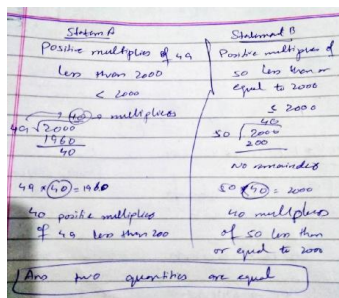 Statem A
Positive multiples of 49
less than 2000
< 2000
40 → multiples
49 √2000
1960
40
49 × 40 = 1960
40 positive multiples
of 49 less than 200
Statement B
Positive multiples of
50 less than or
equal to 2000
≤ 2000
40
50 √2000
200
No remainder
50 × 40 = 2000
40 multiples
of 50 less than
or equal to 2000
Ans two quantities are equal